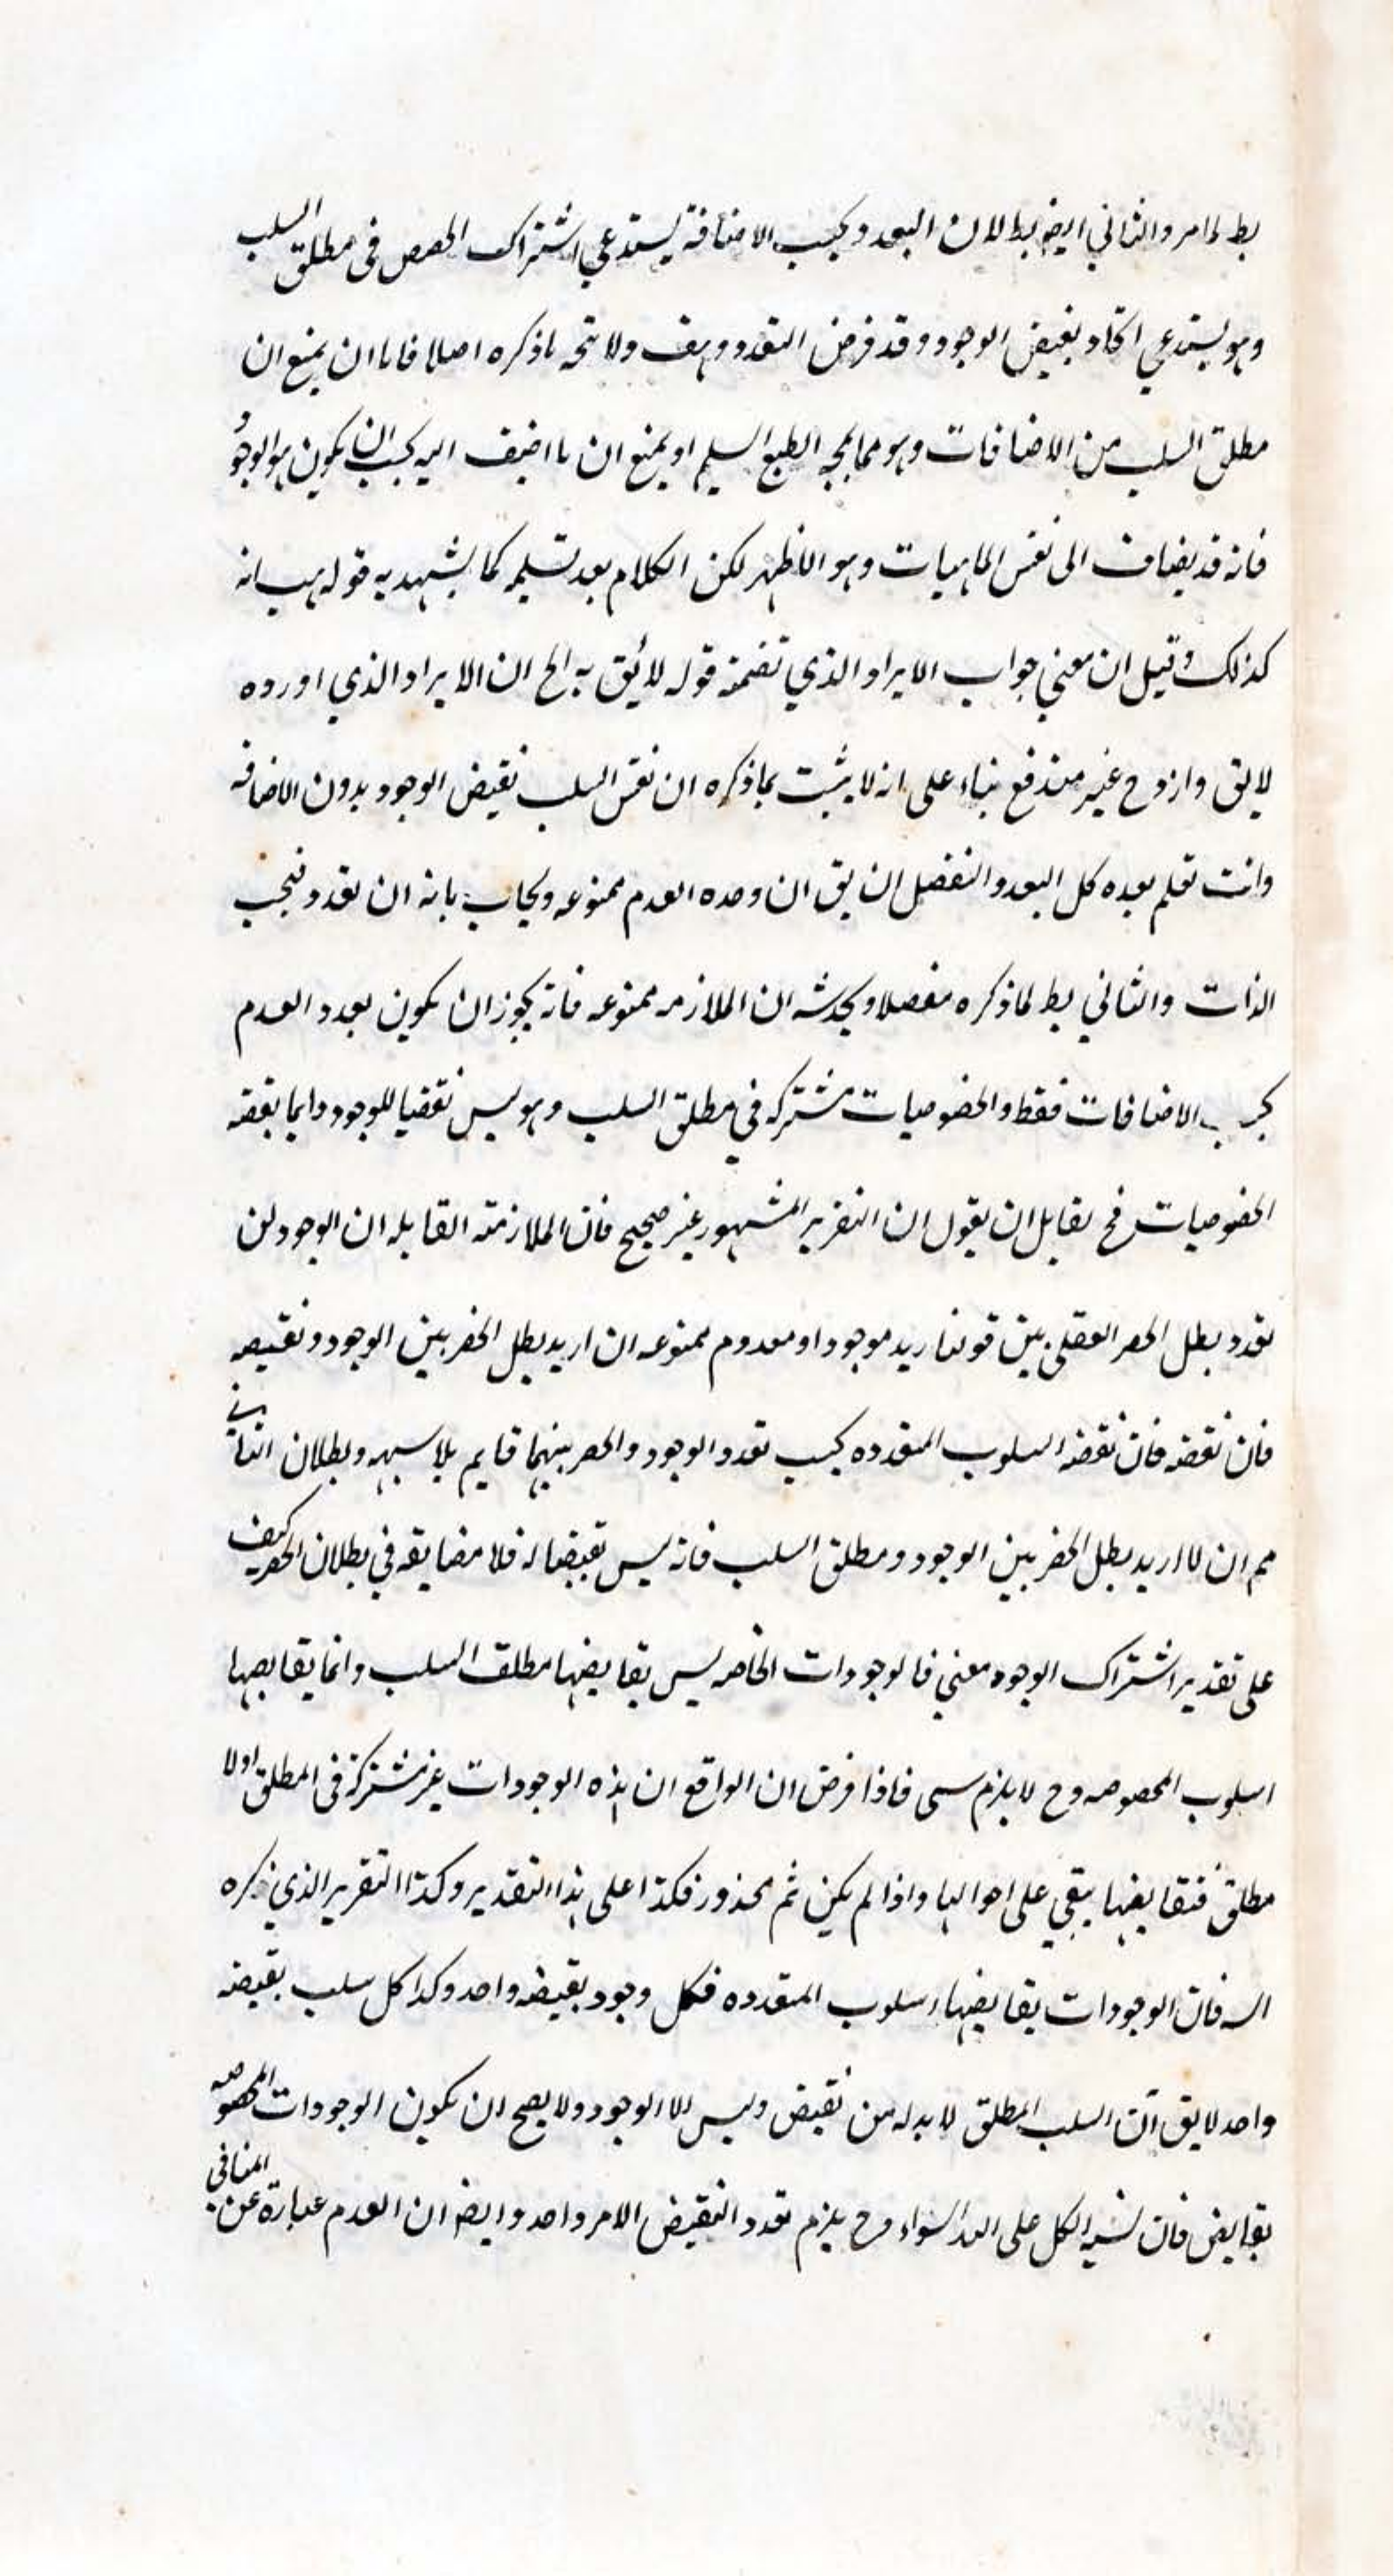 بط لما مر والثاني ايضا بط لان التعدد بحسب الاضافة يستدعي اشتراك الحصص في مطلق السلب
وهو يستدعي اتحاد نقيض الوجود وقد فرض التعدد وهف ولا يتجه ما ذكره اصلا فاما ان يمنع ان
مطلق السلب من الاضافات وهو مما يمجه الطبع السليم او يمنع ان ما اضيف اليه يجب ان يكون هو الوجود
فانه قد يضاف الى نفس الماهيات وهو الاظهر لكن الكلام بعد تسليمه كما يشهد به قوله هب انه
كذلك وقيل ان معني جواب الايراد الذي تضمنه قوله لا يق به الخ ان الايراد الذي اورده
لا يق وازوح غير مندفع بناء على انه لا يثبت بما ذكره ان نفس السلب نقيض الوجود بدون الاضافه
وانت تعلم بعده كل البعد والتفصيل ان يق ان وحده العدم ممنوعه ويجاب بانه ان تعدد فبحسب
الذات والثاني بط لما ذكره مفصلا ويخدشه ان الملازمه ممنوعه فانه يجوز ان يكون تعدد العدم
بحسب الاضافات فقط والخصوصيات مشتركه في مطلق السلب وهو ليس نقضيا للوجود وانما نقضه
الخصوصيات فح لقابل ان يقول ان التقرير المشهور غير صحيح فان الملازمة القابله ان الوجود لن
تعدد بطل الحصر العقلي بين قولنا زيد موجود او معدوم ممنوعه ان اريد بطل الحصر بين الوجود ونقيضه
فان نقضه فان نقضه السلوب المتعدده بحسب تعدد الوجود والحصر بينهما قايم بلا شبهه وبطلان التاني
مم ان لا اريد بطل الحصر بين الوجود ومطلق السلب فانه ليس نقيضا له فلا مضايقه في بطلان الحصر كيف
على تقدير اشتراك الوجود معني فالوجودات الخاصه ليس نقايضها مطلق السلب وانما نقايضها
السلوب المخصوصه وح لا يلزم شي فاذا فرض ان الواقع ان هذه الوجودات غير مشتركة في المطلق اولا
مطلق فنقايضها يبقي على احوالها واذا لم يكن ثم محذور فكذا على هذا التقدير وكذا التقرير الذي ذكره
السه فان الوجودات نقايضها السلوب المتعدده فكل وجود نقيضه واحد وكذا كل سلب نقيضه
واحد لا يق ان السلب المطلق لا بد له من نقيض وليس الا الوجود ولا يصح ان يكون الوجودات المخصوصه
نقايض فان نسبة الكل على السواء وح يلزم تعدد النقيض لامر واحد وايضا ان العدم عبارة عن المنافي